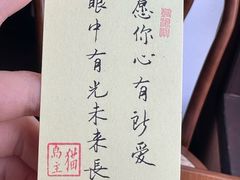 愿你心有所爱
眼中有光未来長
岛主